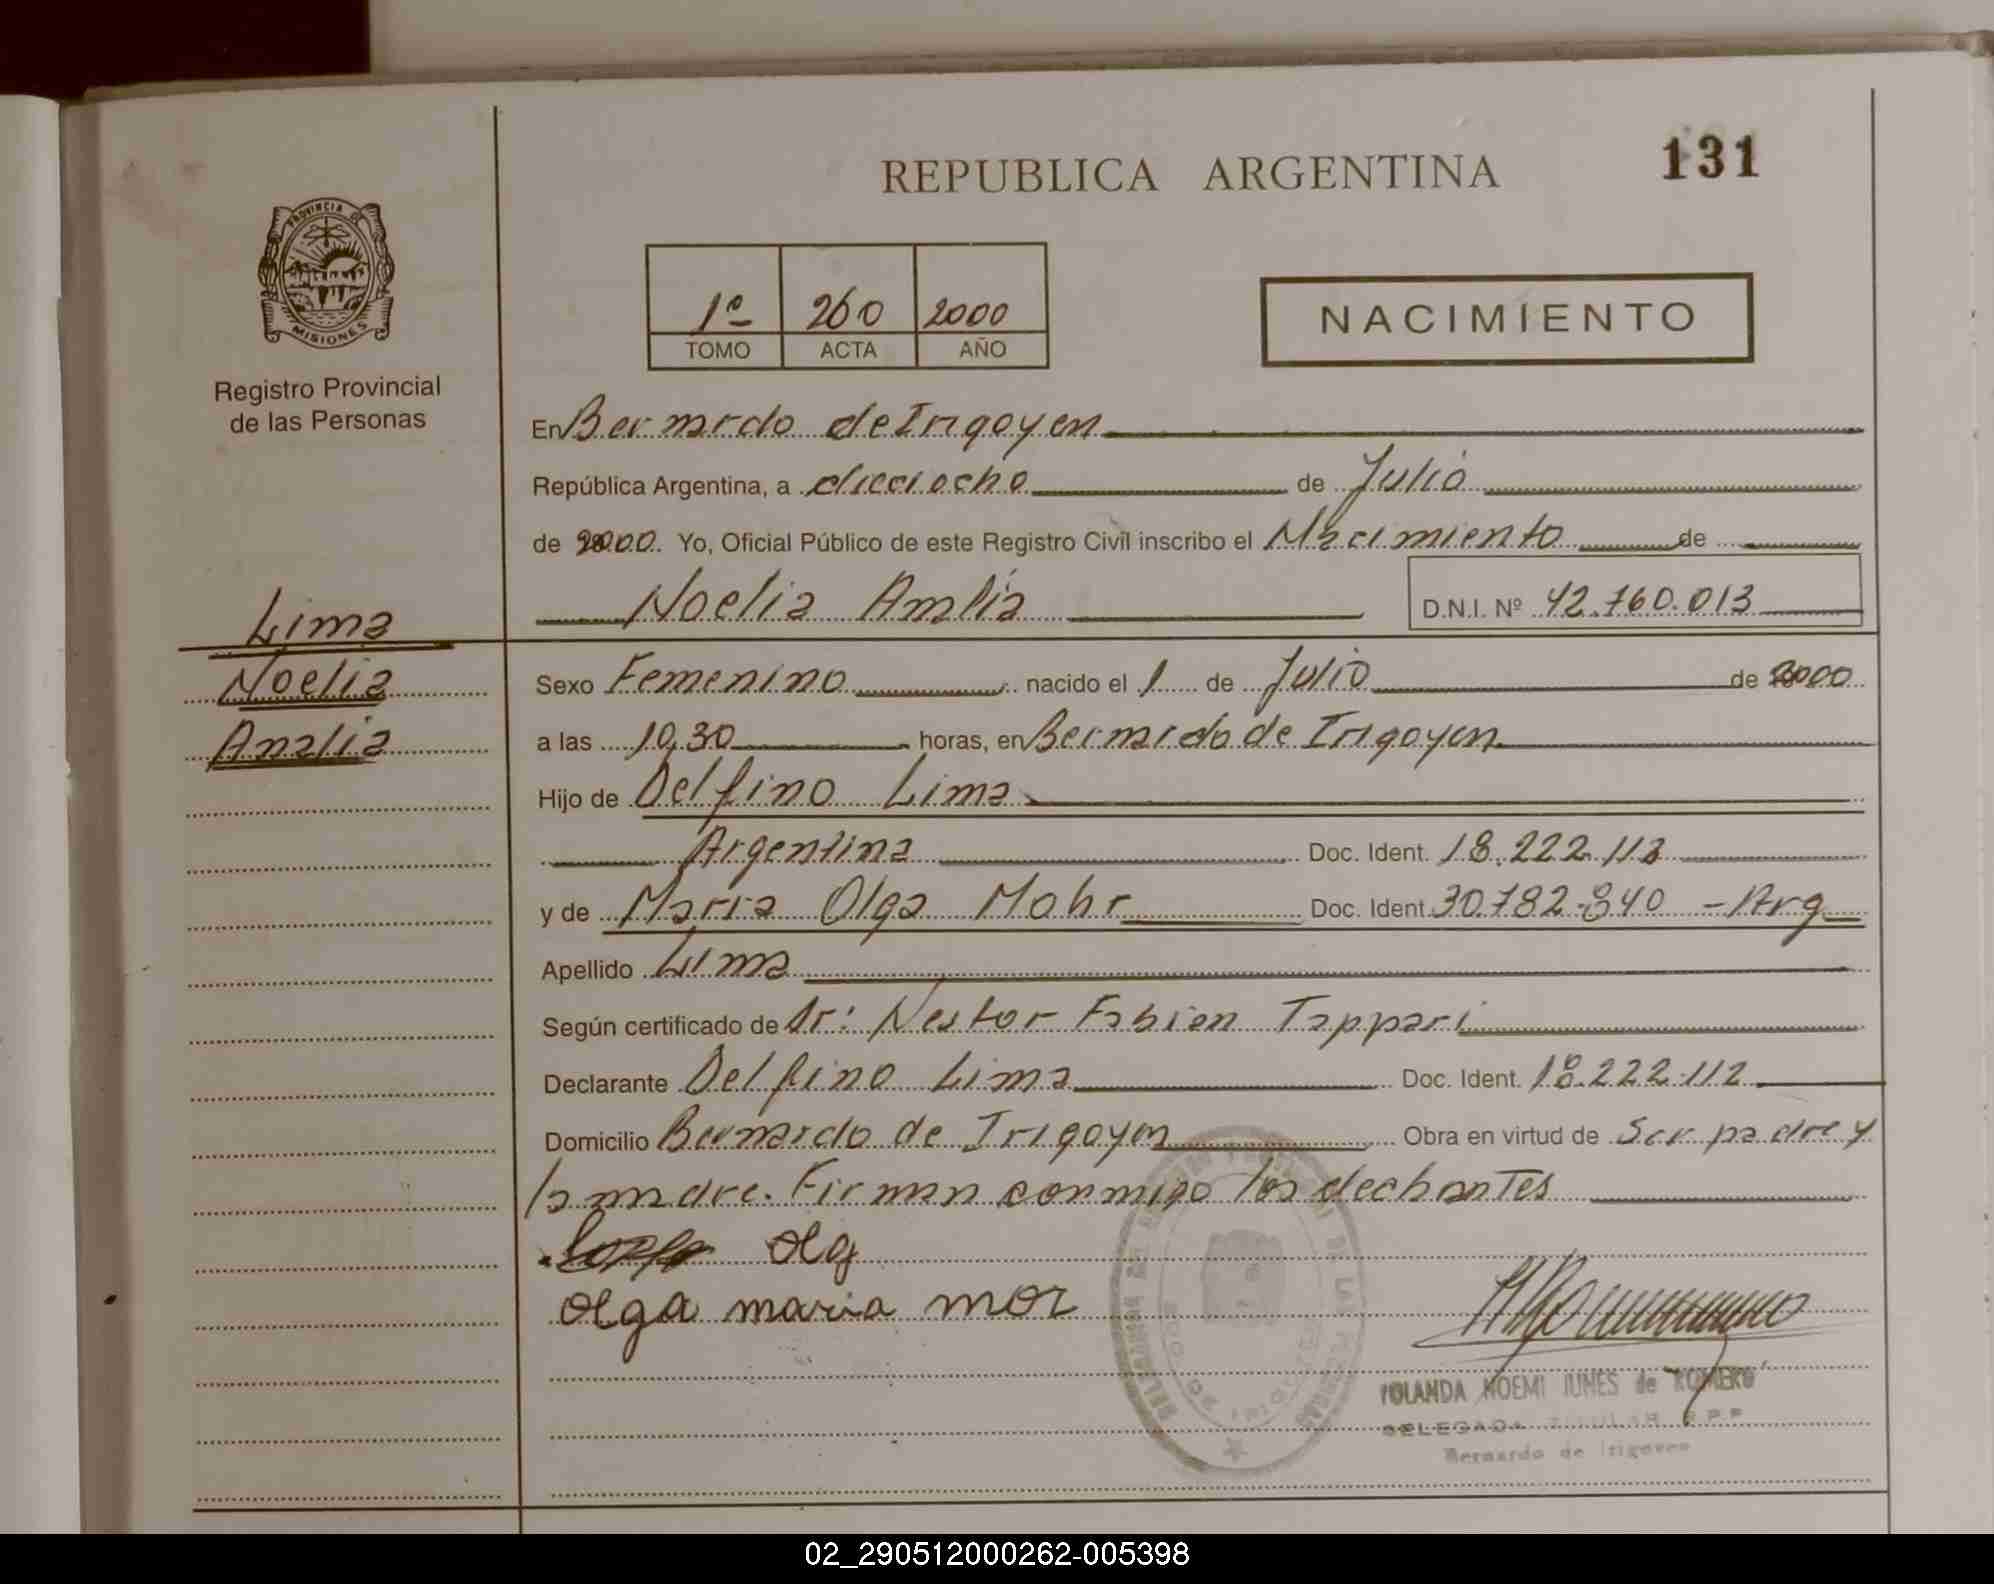 131
REPUBLICA ARGENTINA
PROVINCIA DE
MISIONES
Registro Provincial
de las Personas
1º 260 2000
TOMO ACTA AÑO
NACIMIENTO
En Bernardo de Irigoyen
República Argentina, a dieciocho de Julio
de 2000. Yo, Oficial Público de este Registro Civil inscribo el Nacimiento de
Noelia Analía D.N.I. Nº 42.760.013
Lima
Noelia
Analia
Sexo Femenino nacido el 1 de Julio de 2000
a las 10,30 horas, en Bernardo de Irigoyen
Hijo de Delfino Lima
Argentina Doc. Ident. 18.222.112
y de Maria Olga Mohr Doc. Ident. 30.782.840 - Arg
Apellido Lima
Según certificado de Dr: Nestor Fabian Tappari
Declarante Delfino Lima Doc. Ident. 18.222.112
Domicilio Bernardo de Irigoyen Obra en virtud de Ser padre y
la madre. Firman conmigo los declarantes
olg
olga maria mor
YOLANDA NOEMI IUNES de ROMERO
DELEGADA TITULAR R.P.P.
Bernardo de Irigoyen
02_290512000262-005398